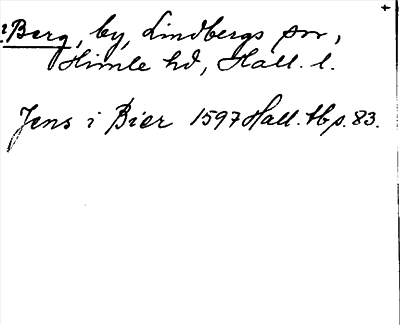 Berg, by, Lindbergs sn,
Himle hd, Hall. l.
Jens i Bier 1597 Hall. tb s. 83.